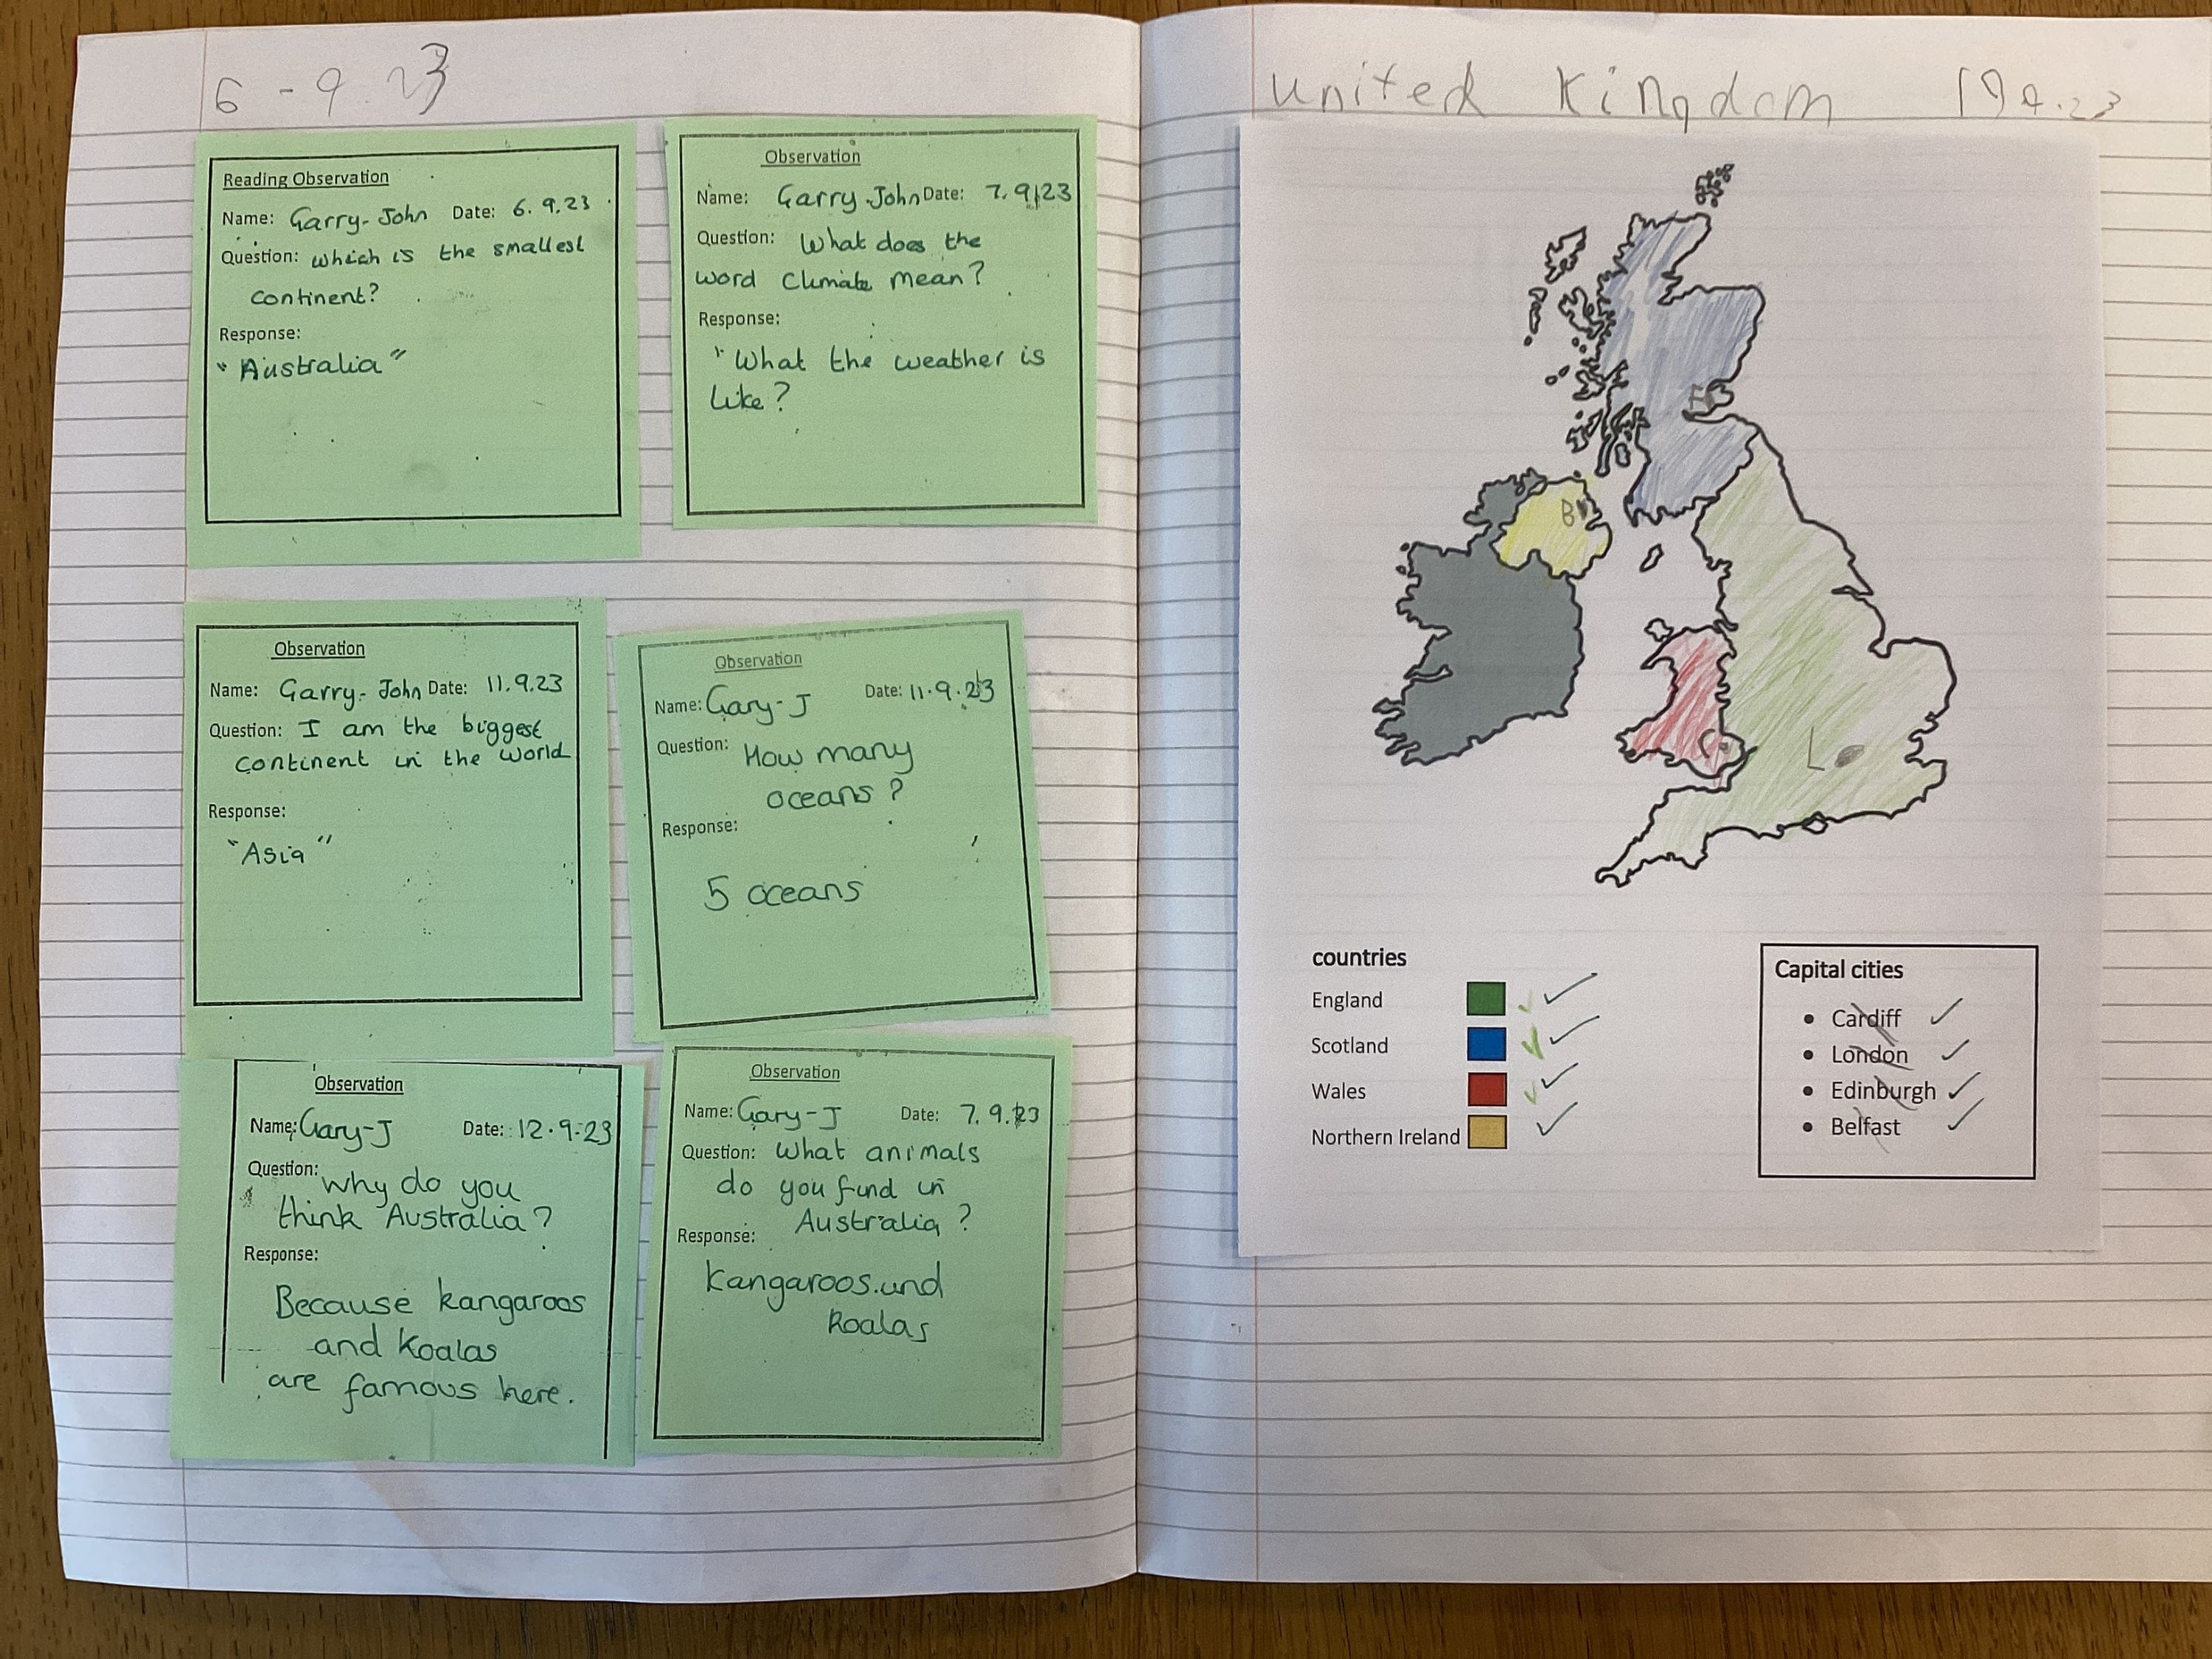 6 - 9 23
Reading Observation
Name: Garry-John Date: 6.9.23
Question: which is the smallest
continent?
Response:
"Australia"
Observation
Name: Garry-John Date: 7.9.23
Question: What does the
word Climate mean?
Response:
"What the weather is
like?
Observation
Name: Garry-John Date: 11.9.23
Question: I am the biggest
continent in the world
Response:
"Asia"
Observation
Name: Gary-J Date: 11.9.23
Question: How many
oceans?
Response:
5 oceans
Observation
Name: Gary-J Date: 12.9.23
Question: why do you
think Australia?
Response:
Because kangaroos
and Koalas
are famous here.
Observation
Name: Gary-J Date: 7.9.23
Question: What animals
do you find in
Australia?
Response:
Kangaroos.und
Koalas
united Kingdom 19 9.23
E
B
C
L
countries
England
Scotland
Wales
Northern Ireland
Capital cities
• Cardiff
• London
• Edinburgh
• Belfast